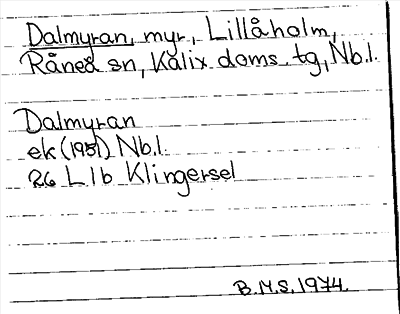 Dalmyran, myr, Lillåholm,
Råneå sn, Kalix doms. tg, Nb.l.
Dalmyran
ek (1951) Nb.l.
26 L l b Klingersel
B.M.S. 1974.